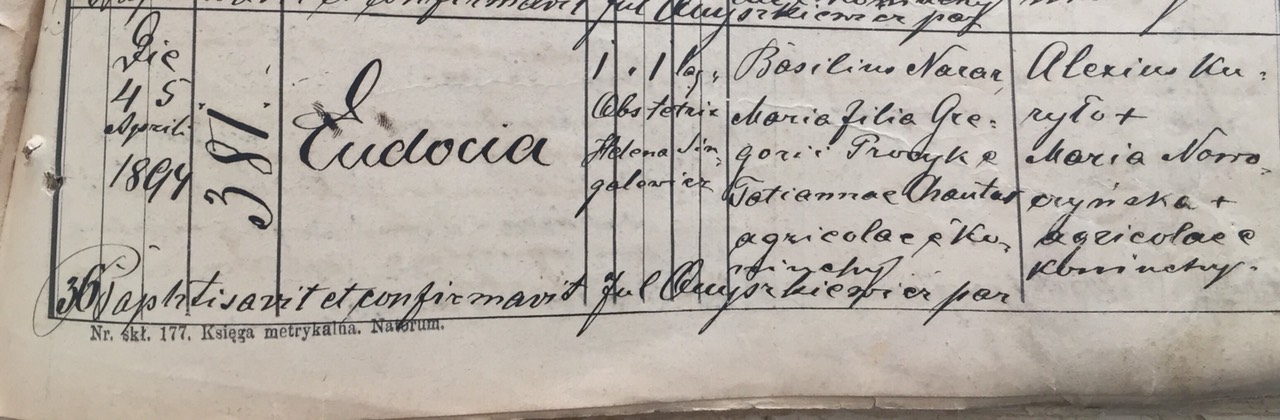 et confirmavit Jul Onyszkiewicz par
Die
4 5
Aprili
1894
381
Eudocia
1 . 1 leg.
Obstetrix
Helena Sin,
galowicz
Basilius Nazar
Maria filia Gre:
gorii Procyk e
Tatiannae Chantas
agricolae e Ko,
niuchy
Alexius Ku,
ryło +
Maria Nowo,
czyńska +
agricolae e
Koniuchy.
36 Baphtisavit et confirmavit Jul Onyszkiewicz par
Nr. skł. 177. Księga metrykalna. Natorum.